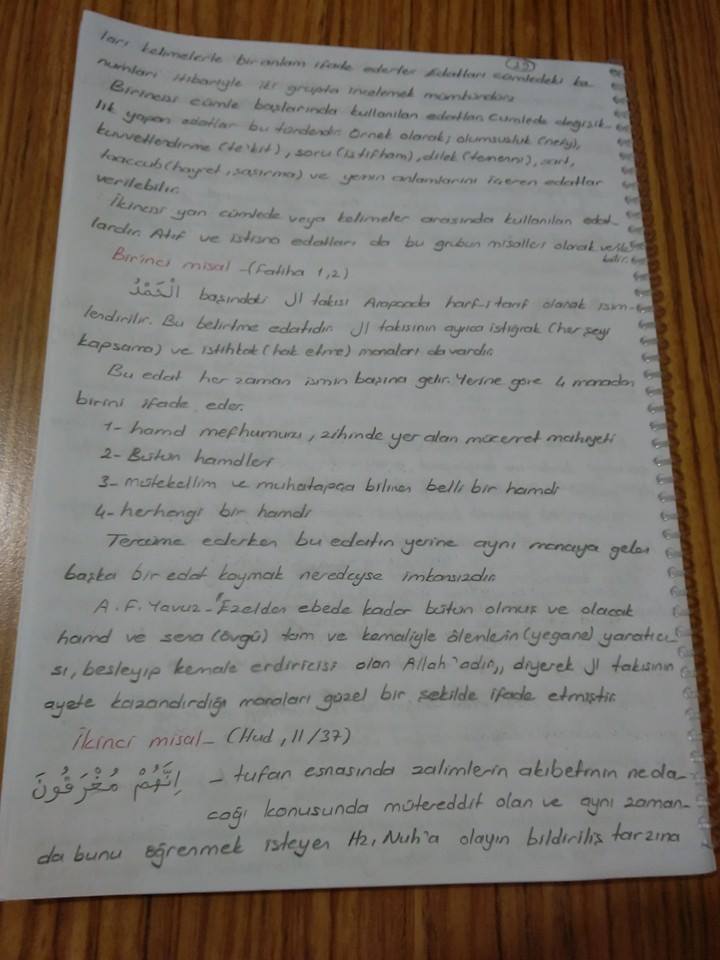 (19)
ları kelimelerle bir anlam ifade ederler Edatları cümledeki ko-
numları itibariyle iki grupta incelemek mümkündür.
Birincisi cümle başlarında kullanılan edatlar. Cümlede değişik-
lik yapan edatlar bu türdendir. Örnek olarak; olumsuzluk (nefy),
kuvvetlendirme (te'kit), soru (istifham), dilek (temenni), şart,
taaccub (hayret, şaşırma) ve yemin anlamlarını içeren edatlar
verilebilir.
İkincisi yan cümlede veya kelimeler arasında kullanılan edat-
lardır. Atıf ve istisna edatları da bu grubun misalleri olarak verile
bilir.
Birinci misal - (Fatiha 1,2)
الْحَمْدُ başındaki ال takısı Arapçada harf-i tarif olarak isim-
lendirilir. Bu belirtme edatıdır ال takısının ayrıca istiğrak (her şeyi
kapsama) ve istihkak (hak etme) manaları da vardır.
Bu edat her zaman ismin başına gelir. Yerine göre 4 manadan
birini ifade eder.
1- hamd mefhumunu, zihinde yer alan mücerret mahiyeti
2- Bütün hamdleri
3- mütekellim ve muhatapça bilinen belli bir hamdi
4- herhangi bir hamdi
Tercüme ederken bu edatın yerine aynı manaya gelen
başka bir edat koymak neredeyse imkansızdır.
A. F. Yavuz - "Ezelden ebede kadar bütün olmuş ve olacak
hamd ve sena (övgü) tam ve kemaliyle âlemlerin (yegane) yaratıcı-
sı, besleyip kemale erdiricisi olan Allah'adır,, diyerek ال takısının
ayete kazandırdığı manaları güzel bir şekilde ifade etmiştir.
İkinci misal - (Hud, 11/37)
اِنَّهُمْ مُغْرَقُونَ - tufan esnasında zalimlerin akıbetinin ne ola-
cağı konusunda mütereddit olan ve aynı zaman-
da bunu öğrenmek isteyen Hz, Nuh'a olayın bildiriliş tarzına